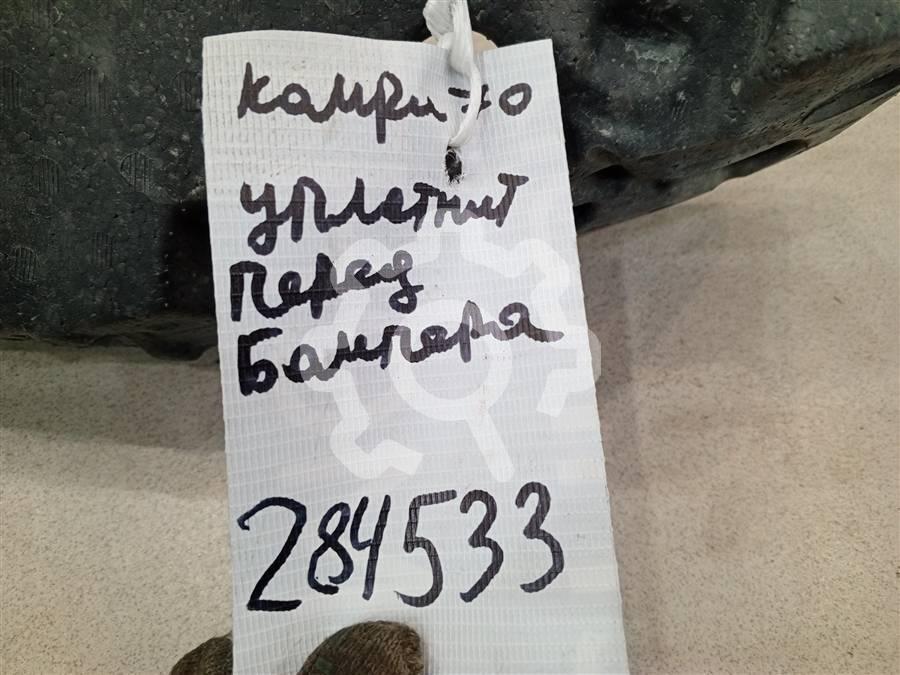 Камри 70
уплетнит
перед
Бампера
284533